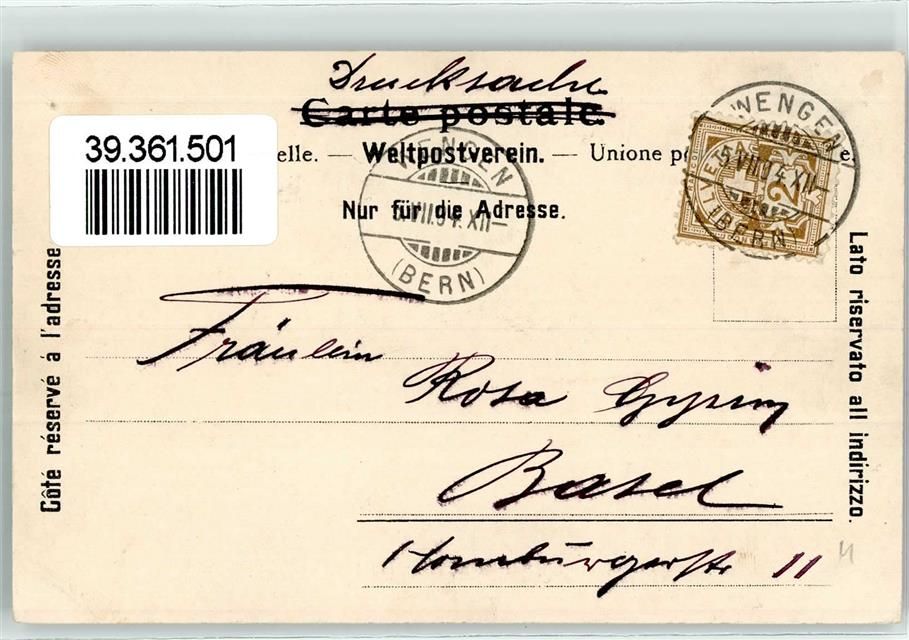 Drucksache
Carte postale.
39.361.501
elle. — Weltpostverein. — Unione p
e.
Nur für die Adresse.
WENGEN
XII—
(BERN)
WENGEN
XII—
(BERN)
2
Côté réservé á l'adresse
Lato riservato all indirizzo.
Fräulein
Rosa Gysin
Basel
Homburgerstr 11